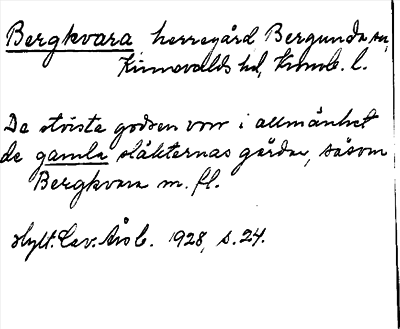 Bergkvara herregård Bergunda sn,
Kinnevalds hd, Kronob. l.
De största godsen voro i allmänhet
de gamla släkternas gårdar, såsom
Bergkvara m. fl.
Hylt. Cav. Årsb. 1928, s. 24.